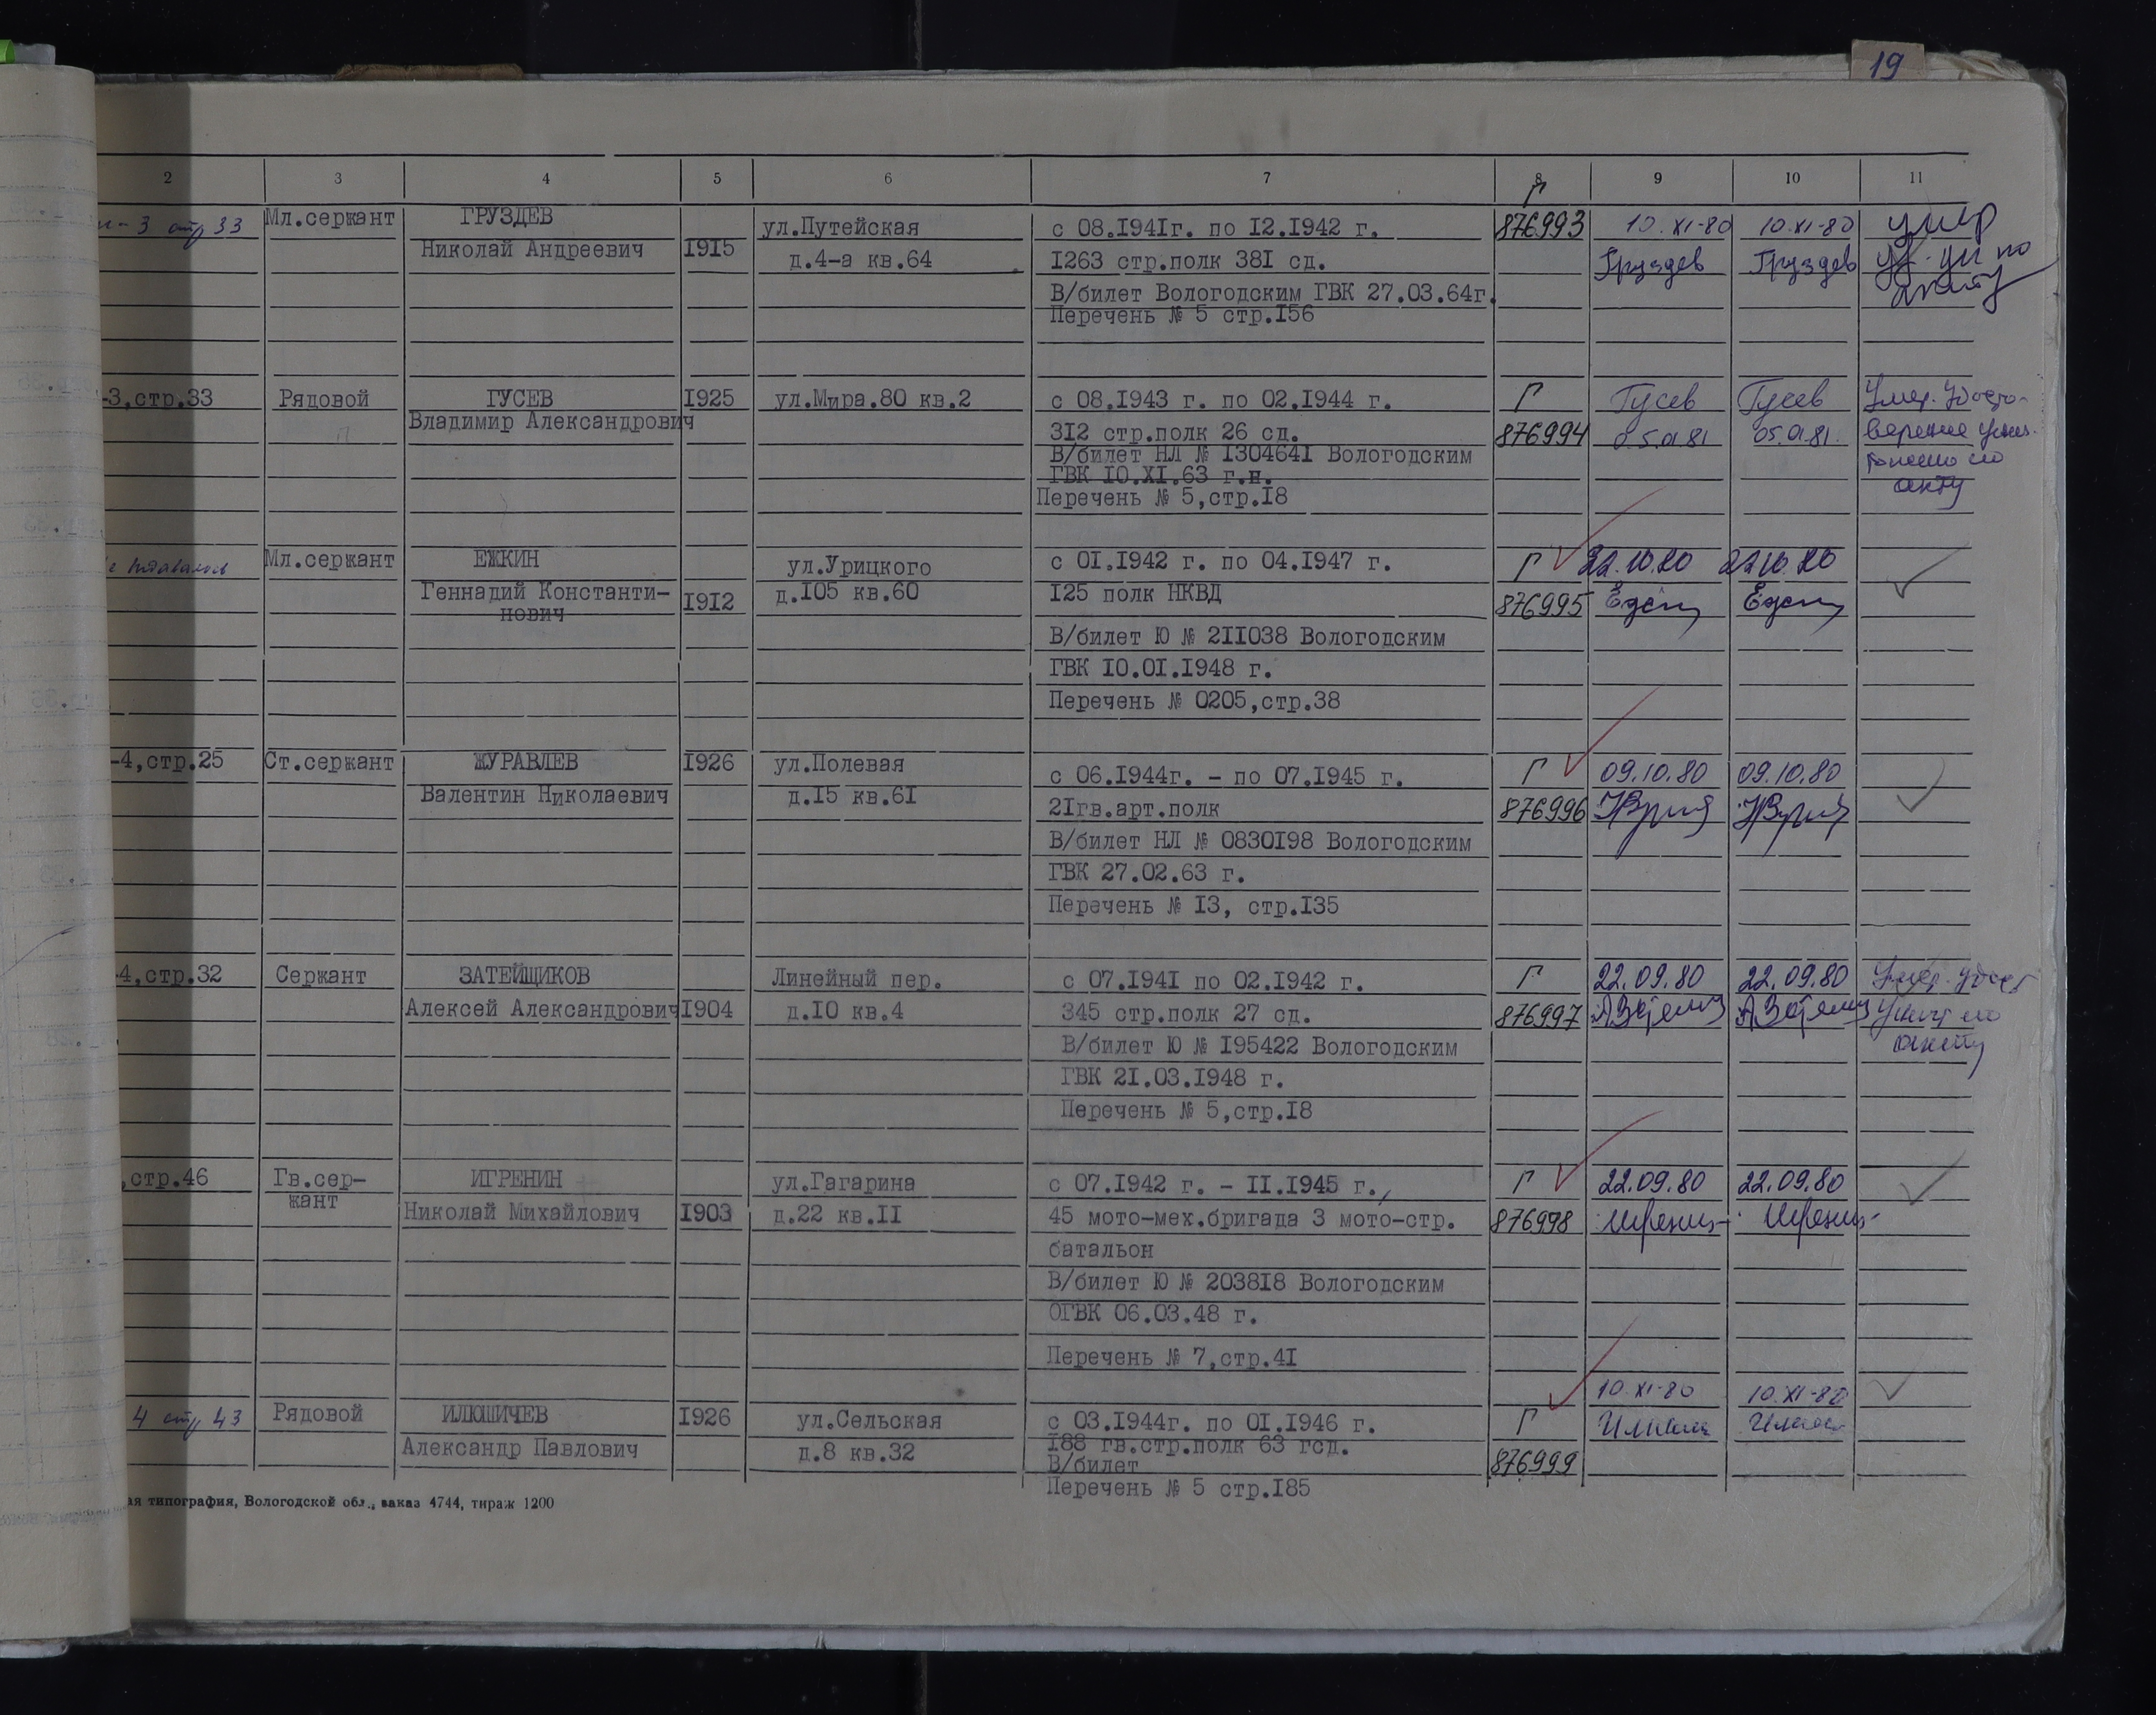 19
2 3 4 5 6 7 8 9 10 11
3 стр 33 Мл.сержант ГРУЗДЕВ
Николай Андреевич 1915
ул.Путейская
д.4-а кв.64
с 08.1941г. по 12.1942 г.
1263 стр.полк 381 сд.
В/билет Вологодским ГВК 27.03.64г.
Перечень № 5 стр.156
Г
876993
10.XI-80
Груздев
10.XI-80
Груздев
умер
по
акту
-3,стр.33 Рядовой ГУСЕВ
Владимир Александрович
1925
ул.Мира.80 кв.2
с 08.1943 г. по 02.1944 г.
312 стр.полк 26 сд.
В/билет НЛ № 1304641 Вологодским
ГВК 10.XI.63 г.н.
Перечень № 5,стр.18
Г
876994
Гусев
05.01.81
Гусев
05.01.81.
Умер. Удосто-
верение унич-
тожено по
акту
Мл.сержант ЕЖКИН
Геннадий Константи-
нович
1912
ул.Урицкого
д.105 кв.60
с 01.1942 г. по 04.1947 г.
125 полк НКВД
В/билет Ю № 211038 Вологодским
ГВК 10.01.1948 г.
Перечень № 0205,стр.38
Г
876995
22.10.80
22.10.80
-4,стр.25 Ст.сержант ЖУРАВЛЕВ
Валентин Николаевич
1926
ул.Полевая
д.15 кв.61
с 06.1944г. - по 07.1945 г.
21гв.арт.полк
В/билет НЛ № 0830198 Вологодским
ГВК 27.02.63 г.
Перечень № 13, стр.135
Г
876996
09.10.80
09.10.80
-4,стр.32 Сержант ЗАТЕЙЩИКОВ
Алексей Александрович 1904
Линейный пер.
д.10 кв.4
с 07.1941 по 02.1942 г.
345 стр.полк 27 сд.
В/билет Ю № 195422 Вологодским
ГВК 21.03.1948 г.
Перечень № 5,стр.18
Г
876997
22.09.80
22.09.80
Умер. удост
уничт по
акту
,стр.46 Гв.сер-
жант
ИГРЕНИН
Николай Михайлович 1903
ул.Гагарина
д.22 кв.11
с 07.1942 г. - 11.1945 г.,
45 мото-мех.бригада 3 мото-стр.
батальон
В/билет Ю № 203818 Вологодским
ОГВК 06.03.48 г.
Перечень № 7,стр.41
Г
876998
22.09.80
22.09.80
4 стр 43 Рядовой ИЛЮШИЧЕВ
Александр Павлович
1926
ул.Сельская
д.8 кв.32
с 03.1944г. по 01.1946 г.
188 гв.стр.полк 63 гсд.
В/билет
Перечень № 5 стр.185
Г
876999
10.XI-80
10.XI-80
ая типография, Вологодской обл., заказ 4744, тираж 1200